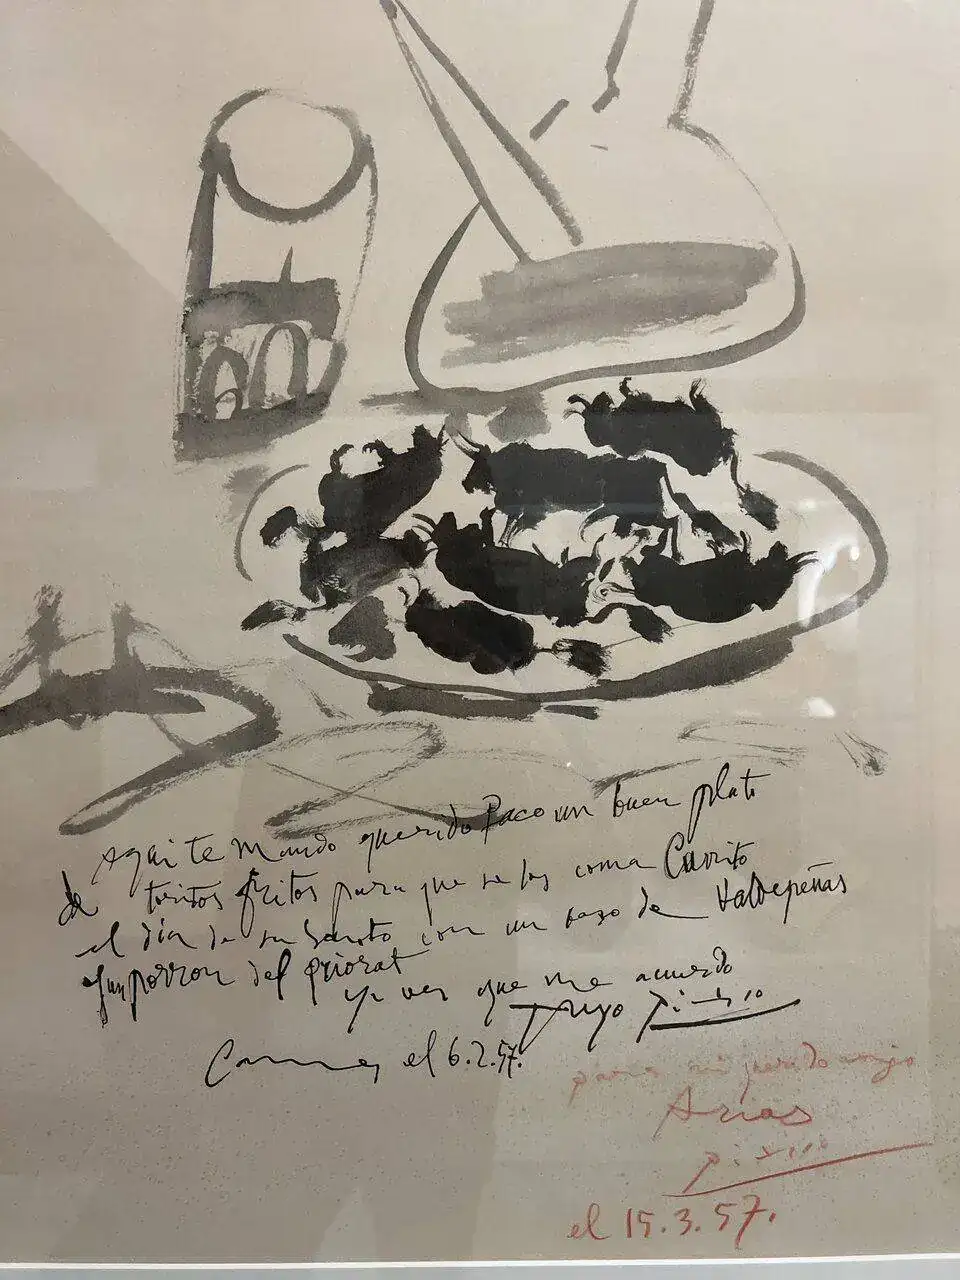 Aqui te mando querido Paco un buen plato
de toritos fritos para que se los coma Currito
el dia de su Santo con un baso de Valdepeñas
y un porron del Priorat
ya ves que me acuerdo
tuyo Picasso
Cannes el 6.2.57.
para mi querido amigo
Arias
Picasso
el 15.3.57.